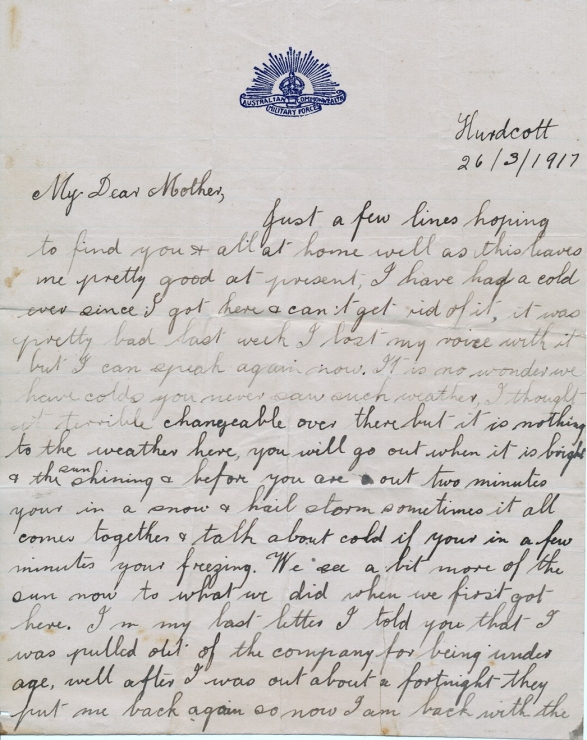 AUSTRALIAN COMMONWEALTH
MILITARY FORCES
Hurdcott
26/3/1917
My Dear Mother,
Just a few lines hoping
to find you & all at home well as this leaves
me pretty good at present, I have had a cold
ever since I got here & can't get rid of it, it was
pretty bad last week I lost my voice with it
but I can speak again now. It is no wonder we
have colds you never saw such weather, I thought
it terrible changeable over there but it is nothing
to the weather here, you will go out when it is bright
& the sun shining & before you are out two minutes
your in a snow & hail storm sometimes it all
comes together & talk about cold if your in a few
minutes your freezing. We see a bit more of the
sun now to what we did when we first got
here. In my last letter I told you that I
was pulled out of the company for being under
age, well after I was out about a fortnight they
put me back again so now I am back with the